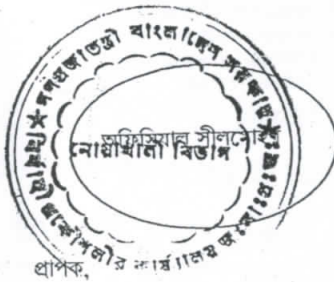 গণপ্রজাতন্ত্রী বাংলাদেশ সরকার
অফিসিয়াল সীলমোহর
নোয়াখালী বিভাগ
নির্বাহী প্রকৌশলীর কার্যালয়
প্রাপক,